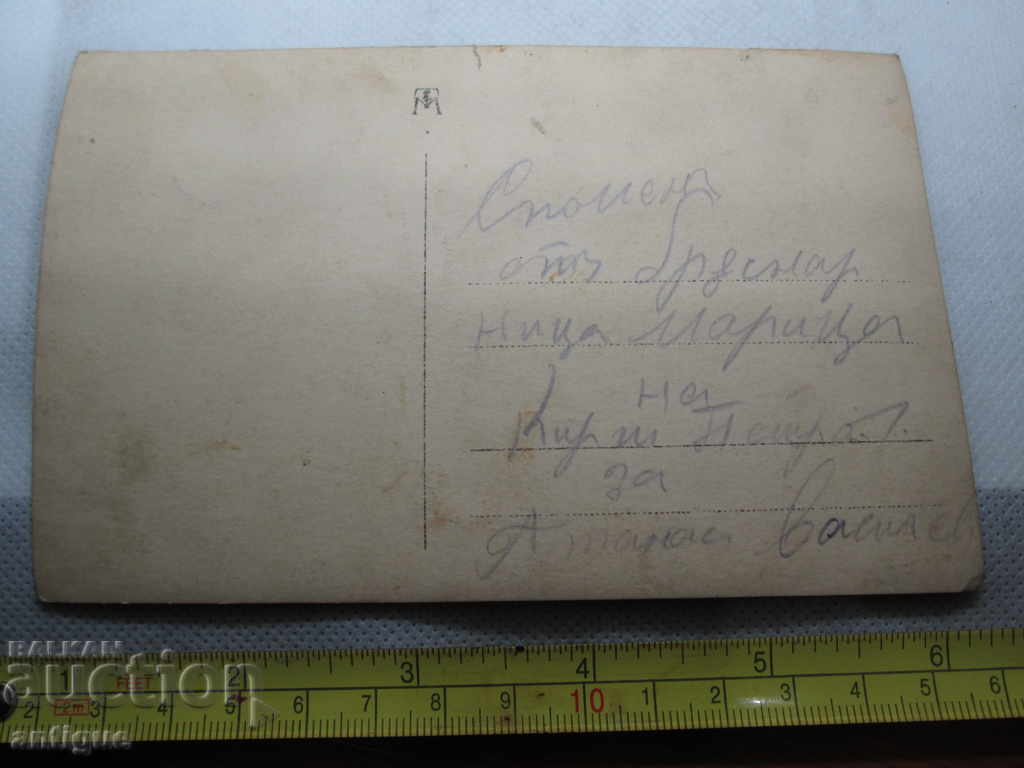 Спомена
отъ
ница Марица
на
Кирил Петров.
за
Атанас Василев
BALKAN
auction
antigue
FEET
2m
1 2 3 4 5 6
2 3 4 5 6 7 8 9 10 1 2 3 4 5 6